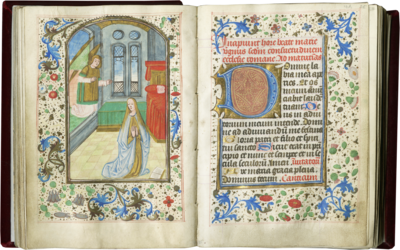 Incipiunt hore beate marie
virginis secundum consuetudinem
ecclesie romane. Ad matutinas
Domine la
bia mea ape
ries. Et os
meum annun
ciabit laude
tuam. De
us in ad
iutorium meum intende. Domi
ne ad adiuvandum me festina
Gloria patri et filio et spiri
tui sancto Sicut erat in prin
cipio et nunc et semper et in se
cula seculorum Amen Invitator
Ave maria gracia plena
Dominus tecum